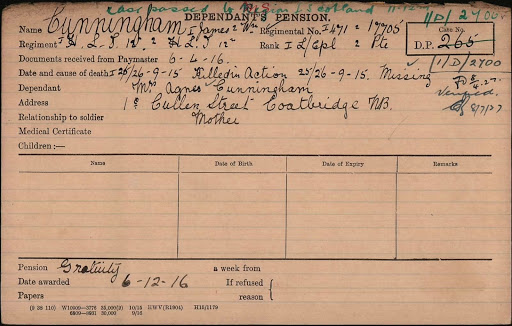 Case passed to Region 1 Scotland 11-12-
DEPENDANT'S PENSION.
11/D/ 2700
Name Cunningham 1 James 2 Wm Regimental No. 1 471 2 17905
Case No.
D.P. 265
Regiment 1 H.L.I. 12. 2 H.L.I. 12 Rank 1 L/Cpl 2 Pte
Documents received from Paymaster 6-4-16.
11/D/2700
Date and cause of death 1 25/26-9-15. Killed in Action 25/26-9-15. Missing
Dependant Mrs Agnes Cunningham
Verified.
8/7/27
Address 19 Cullen Street Coatbridge N.B.
Relationship to soldier Mother
Medical Certificate
Children:—
Name Date of Birth Date of Expiry Remarks
Pension Gratuity a week from
Date awarded 6-12-16 If refused {
Papers reason {
(9 38 110) W10800—3776 35,000(3) 10/15 HWV(R1904) H15/1179
6809—8931 30,000 9/16